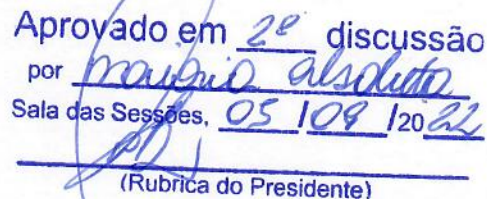 Aprovado em 2ª discussão
por maioria absoluta
Sala das Sessões, 05 / 09 / 2022
(Rubrica do Presidente)